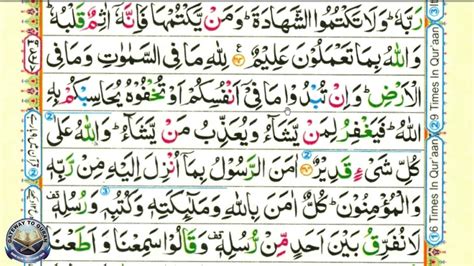 رَبَّهٗ ؕ وَلَا تَكْتُمُوا الشَّهَادَةَ ؕ وَمَنْ يَّكْتُمْهَا فَاِنَّهٗۤ اٰثِمٌ قَلْبُهٗ ؕ
وَاللّٰهُ بِمَا تَعْمَلُوْنَ عَلِيْمٌ ۟ لِلّٰهِ مَا فِی السَّمٰوٰتِ وَمَا فِی
الْاَرْضِ ؕ وَاِنْ تُبْدُوْا مَا فِیْۤ اَنْفُسِكُمْ اَوْ تُخْفُوْهُ يُحَاسِبْكُمْ بِهِ
اللّٰهُ ؕ فَيَغْفِرُ لِمَنْ يَّشَآءُ وَيُعَذِّبُ مَنْ يَّشَآءُ ؕ وَاللّٰهُ عَلٰی
كُلِّ شَیْءٍ قَدِيْرٌ ۟ اٰمَنَ الرَّسُوْلُ بِمَاۤ اُنْزِلَ اِلَيْهِ مِنْ رَّبِّهٖ
وَالْمُؤْمِنُوْنَ ؕ كُلٌّ اٰمَنَ بِاللّٰهِ وَمَلٰٓئِكَتِهٖ وَكُتُبِهٖ وَرُسُلِهٖ ۟
لَا نُفَرِّقُ بَيْنَ اَحَدٍ مِّنْ رُّسُلِهٖ ۟ وَقَالُوْا سَمِعْنَا وَاَطَعْنَا
29 Times In Qur'aan
16 Times In Qur'aan
GATEWAY TO QURAN